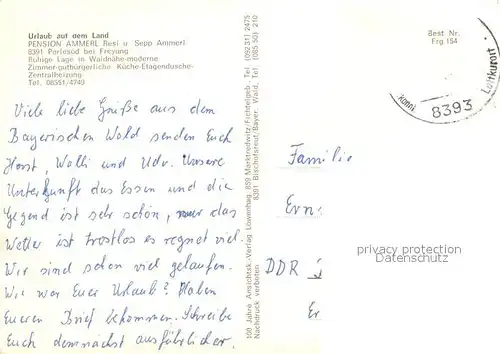 Urlaub auf dem Land
PENSION AMMERL Resi u. Sepp Ammerl
8391 Perlesöd bei Freyung
Ruhige Lage in Waldnähe-moderne
Zimmer-gutbürgerliche Küche-Etagendusche-
Zentralheizung
Tel. 08551/4749
Viele liebe Grüße aus dem
Bayerischen Wald senden Euch
Horst, Walli und Udo. Unsere
Unterkunft das Essen und die
Gegend ist sehr schön, nur das
Wetter ist trostlos es regnet viel.
Wir sind schon viel gelaufen.
Wie war Euer Urlaub? Haben
Eueren Brief bekommen. Schreibe
Euch demnächst ausführlicher.
100 Jahre Ansichtsk.-Verlag Löwenhag, 859 Marktredwitz/Fichtelgeb. Tel. (09231) 2475
Nachdruck verboten 8391 Bischofsreut/Bayer. Wald, Tel. (08550) 210
Best Nr.
Frg 154
8393
Luftkurort
Familie
Ern
DDR
Er
privacy protection
Datenschutz